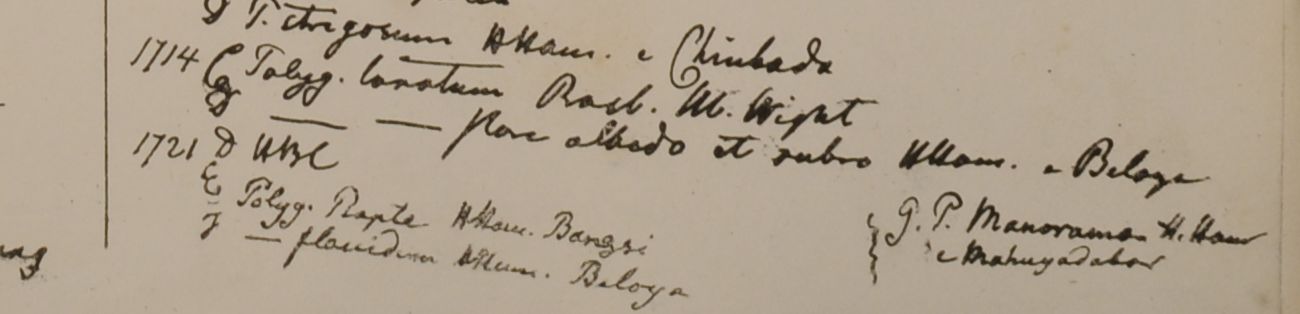 D P. strigosum HHam. e Chinbada
1714 C Polyg. lanatum Roxb. Hb. Wight
D — — flore albedo et rubro HHam. e Beloya
1721 D HBC
E Polyg. Rapta HHam. Bangsi
F — flavidum HHam. Beloya
G. P. Manorama H. Ham
e Mahuyadabar